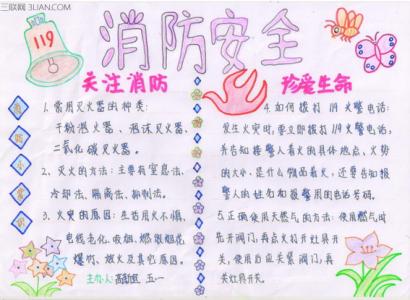 三联网 3LIAN.COM
119
消防安全
关注消防
珍爱生命
消防小常识
1.常用灭火器的种类:
干粉泡火器、泡沫灭火器、
二氧化碳灭火器.
2、灭火的方法:主要有窒息法、
冷却法、隔离法、抑制法.
3、火灾的原因:生活用火不慎,
电线老化,吸烟,燃放烟花
爆竹、燃火及其它原因.
主办人: 五一
4.如何拨打119火警电话:
发生火灾时,要立即拨打119火警电话,
并告知接警人着火的具体地点,火势
的大小,是什么物品着火,还要告知接
警人的姓名和报警用的电话号码.
5.正确使用天然气的方法:使用燃气时
先开阀门,再点火打开灶具开
关,使用后应关紧阀门,再
关灶具开关.